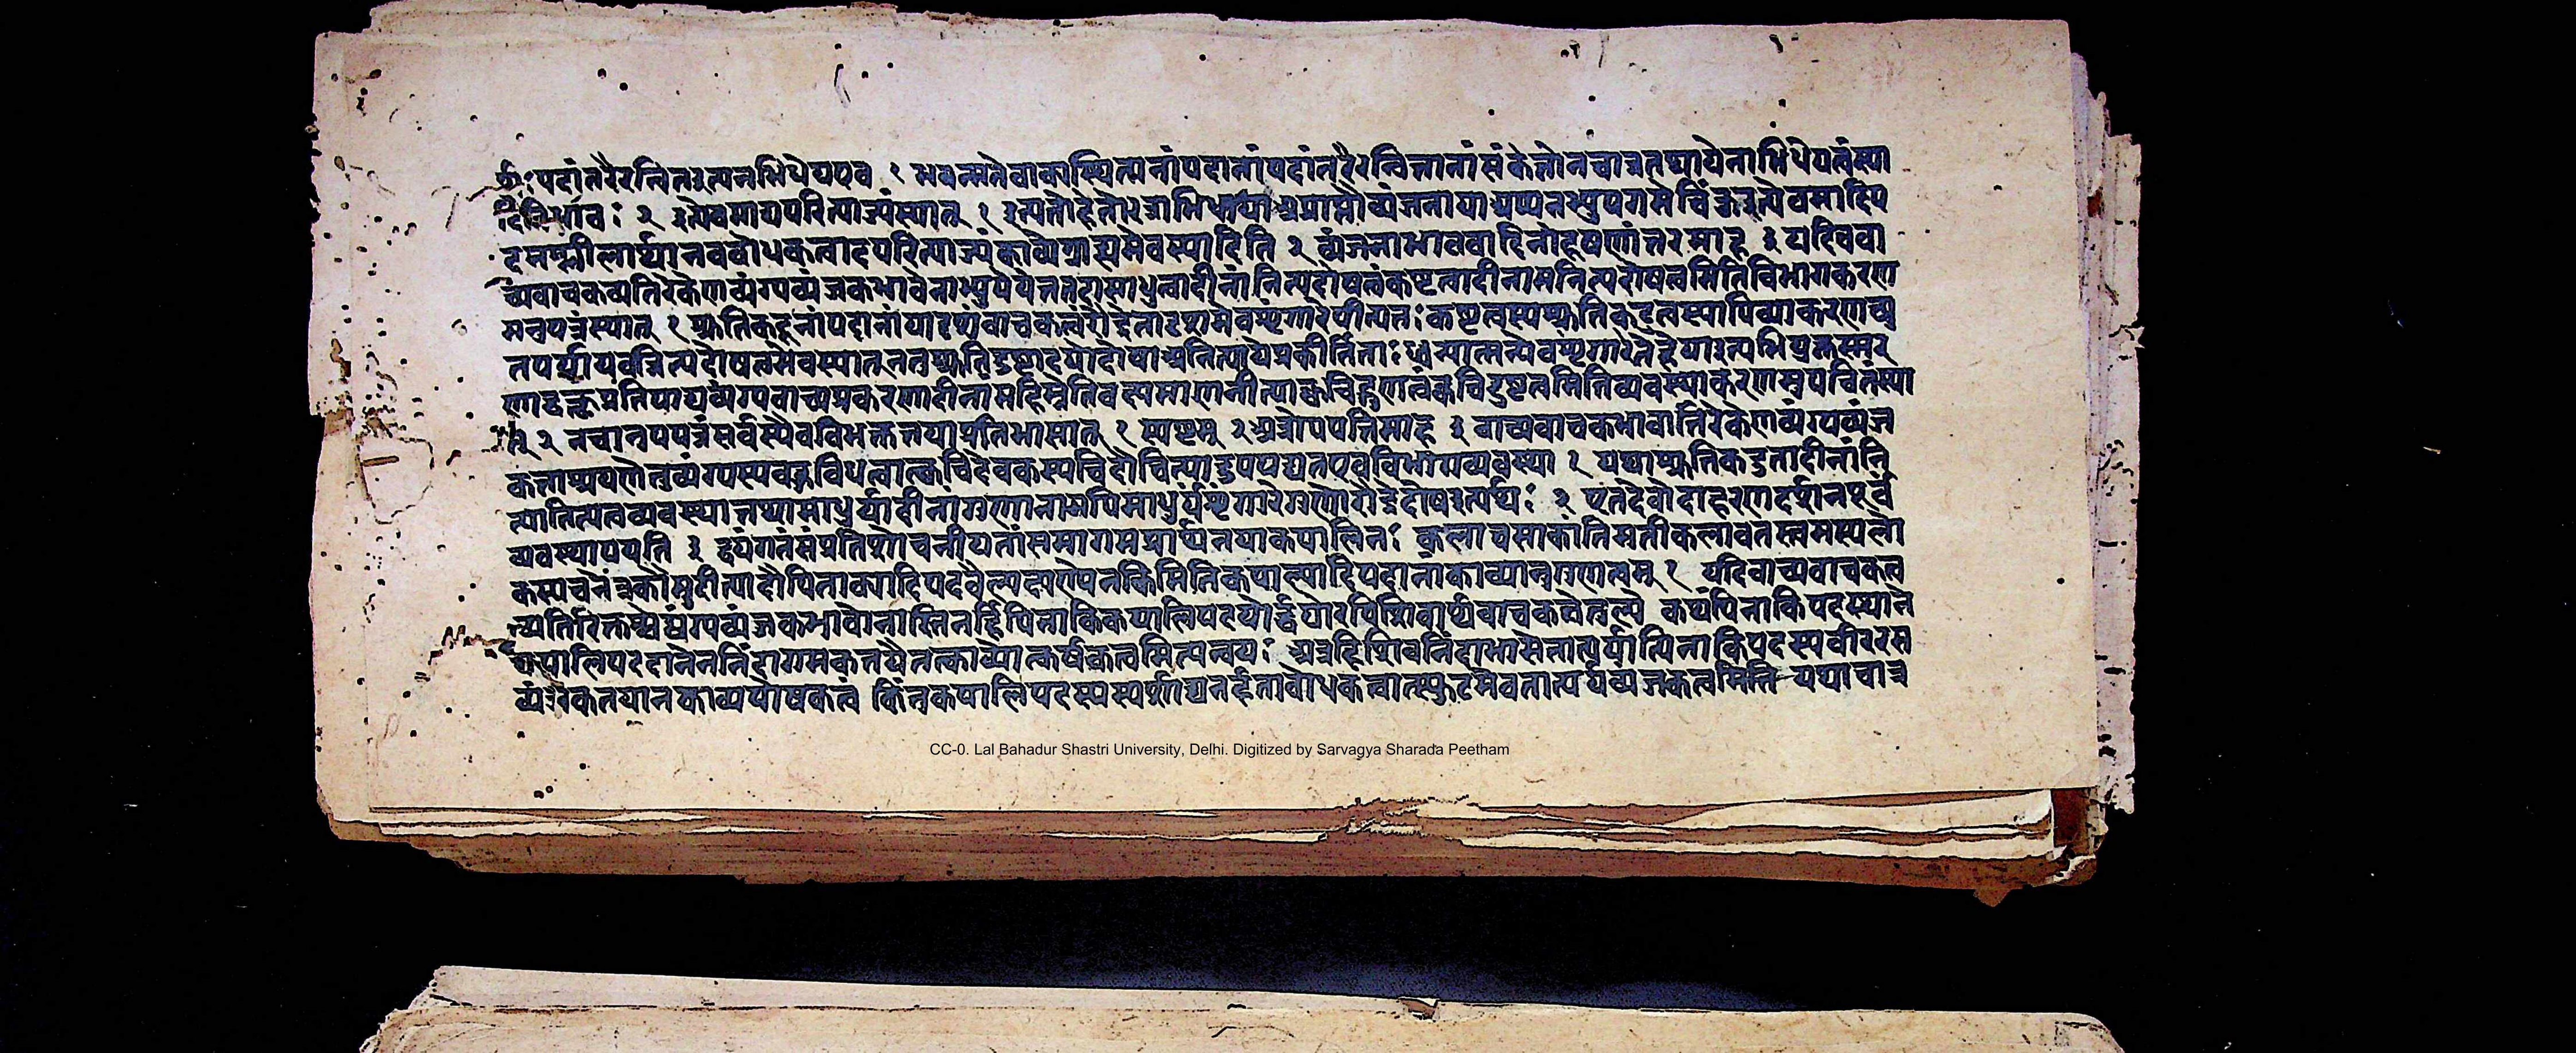 र्थः पदांतरैरन्वितइत्यनभिधेयएव १ भवन्मतेवाक्यस्थितानांपदानांपदांतरैरन्वितानांसंकेतोनचात्रतथायेनाभिधेयत्वंस्या
दितिभावः २ इत्येवमाद्यपरित्याज्यंस्यात् १ इत्यतोहेतोरत्राभिधाया अप्राप्तौव्यंजनायाअप्यनभ्युपगमेचिंकुइत्येवमादिप
दमश्लीलार्थानवबोधकत्वादपरित्याज्यंकाव्येग्राह्यमेवस्यादिति २ व्यंजनाभाववादिनोदूषणांतरमाह ३ यदिचवा
च्यवाचकव्यतिरेकेणव्यंग्यव्यंजकभावोनाभ्युपेयतेतदासाधुत्वादीनांनित्यदोषत्वंकष्टत्वादीनामनित्यदोषत्वमितिविभागकरण
मनुपपन्नंस्यात् १ श्रुतिकटूनांपदानांयादृशंवाचकत्वंरौद्रेतादृशमेवशृंगारेपीत्यतः कष्टत्वस्यश्रुतिकटुत्वस्यापिव्याकरणच्यु
तपर्यायवन्नित्यदोषत्वमेवस्यात् ननुश्रुतिदुष्टादयोदोषाअनित्यायेप्रकीर्तिताः ध्वन्यात्मन्येवशृंगारेतेहेयाइत्यभियुक्तस्मर
णाद्वक्तृप्रतिपाद्यव्यंग्यवाच्यप्रकरणादीनांमहिम्नेतिवक्ष्यमाणनीत्याक्वचिद्गुणत्वंक्वचिद्दुष्टत्वमितिव्यवस्थाकरणमनुपचितंस्या
त् २ नचानुपपन्नंसर्वस्यैवविभक्ततयाप्रतिभासात् १ स्पष्टम् २ अत्रोपपत्तिमाह ३ वाच्यवाचकभावातिरेकेणव्यंग्यव्यंज
कताश्रयणेतुव्यंग्यस्यबहुविधत्वात्क्वचिदेवकस्यचिदौचित्यादुपपद्यतएवविभागव्यवस्था १ यथाश्रुतिकटुतादीनांनि
त्यानित्यत्वव्यवस्थातथामाधुर्यादीनांगुणानामपिमाधुर्यंशृंगारेगुणोरौद्रेदोषइत्यर्थः २ एतदेवोदाहरणदर्शनपूर्वं
व्यवस्थापयति ३ द्वयंगतंसंप्रतिशोचनीयतांसमागमप्रार्थनयाकपालिनः कलाचसाकांतिमतीकलावतस्त्वमस्यलो
कस्यचनेत्रकौमुदीत्यादौपिनाक्यादिपदवैलक्षण्येनकिमितिकपाल्यादिपदानांकाव्यानुगुणत्वम् १ यदिवाच्यवाचकत्व
व्यतिरिक्तश्चव्यंग्यव्यंजकभावोनास्तितर्हिपिनाकिकपालिपदयोर्द्वयोरपिशिवार्थवाचकत्वेतुल्ये कथंपिनाकिपदस्थाने
कपालिपददानेननिंदागमकतयैतत्काव्योत्कर्षकत्वमित्यन्वयः अत्रहिशिवनिंदाभासेतात्पर्यात्पिनाकिपदस्यवीररस
व्यंजकतयानकाव्यपोषकत्वं किंतुकपालिपदस्यस्पर्शाद्यनर्हताबोधकत्वात्स्फुटमेवतात्पर्यव्यंजकत्वमिति यथावात्र
CC-0. Lal Bahadur Shastri University, Delhi. Digitized by Sarvagya Sharada Peetham